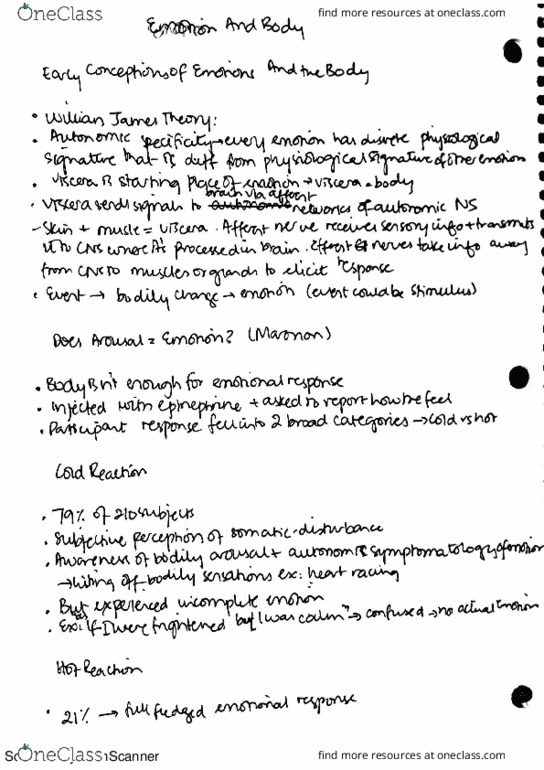 OneClass
find more resources at oneclass.com
Emotion And Body
Early Conceptions of Emotions And the Body
• William James Theory:
• Autonomic specificity → every emotion has discrete physiological
signature that is diff from physiological signature of other emotion
• viscera is starting place of emotion → viscera = body
brain via afferent
• viscera sends signals to autonomic networks of autonomic NS
- Skin + muscle = viscera. Afferent nerve receives sensory info + transmits
it to CNS where it's processed in brain. Efferent nerves take info away
from CNS to muscles or glands to elicit response
• Event → bodily change → emotion (event could be stimulus)
Does Arousal = Emotion? (Maranon)
• Body isn't enough for emotional response
• Injected with epinephrine + asked to report how the feel
• Participant response fell into 2 broad categories → cold vs hot
Cold Reaction
• 79% of 210 subjects
• Subjective perception of somatic disturbance
• Awareness of bodily arousal + autonomic symptomatology of emotion
→ listing off bodily sensations ex: heart racing
• But experienced incomplete emotion
• Ex: "if I were frightened but I was calm" → confused → no actual emotion
Hot Reaction
• 21% → full fledged emotional response
OneClass
Scanner
find more resources at oneclass.com